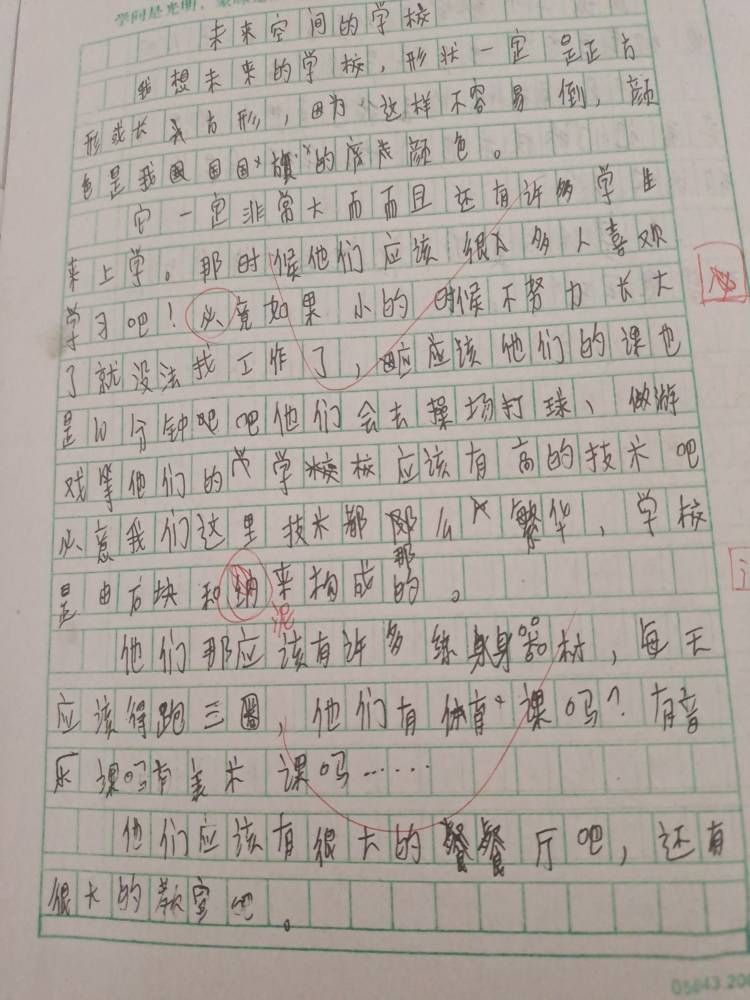 学问是光明，
未来空间的学校
我想未来的学校，形状一定是正方
形或长方形，因为这样不容易倒，颜
色是我国国旗的底色颜色。
它一定非常大而而且还有许多学生
来上学。那时候他们应该很多人喜欢
学习吧！必竟如果小的时候不努力长大
了就没法找工作了，应应该他们的课也
是10分钟吧吧他们会去操场打球、做游
戏等他们的学校应该有高的技术吧
必意我们这里技术都那么繁华，学校
是由石块和 来构成的。
泥
他们那应该有许多练身身器材，每天
应该得跑三圈，他们有体育课吗？有音
乐课吗有美术课吗……
他们应该有很大的餐餐厅吧，还有
很大的教室吧。
05843.200